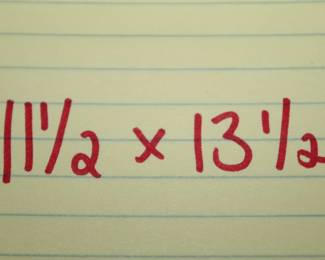 11 1/2 x 13 1/2